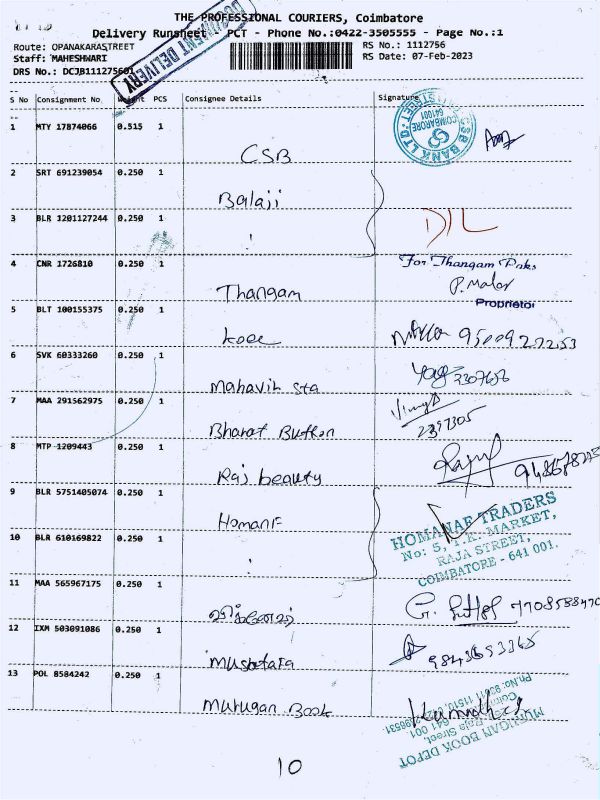 THE PROFESSIONAL COURIERS, Coimbatore
Delivery Runsheet - PCT - Phone No.:0422-3505555 - Page No.:1
Route: OPANAKARASTREET
RS No.: 1112756
Staff: MAHESHWARI
RS Date: 07-Feb-2023
DRS No.: DCJB111275601
DOCUMENT DELIVERY
S No Consignment No Weight PCS Consignee Details Signature
1 MTY 17874066 0.515 1 CSB
CSB BANK LTD
COIMBATORE
641001
2 SRT 691239054 0.250 1 Balaji
3 BLR 1201127244 0.250 1
D/L
4 CNR 1726810 0.250 1 Thangam
For Thangam Paks
P. Malar
Proprietor
5 BLT 100155375 0.250 1
6 SVK 60333260 0.250 1 Mahavir sta
7 MAA 291562975 0.250 1 Bharat Button
2397305
8 MTP 1209443 0.250 1 Raj beauty
9 BLR 5751405074 0.250 1 Homanf
HOMANAF TRADERS
No: 5, T.K. MARKET,
RAJA STREET,
COIMBATORE - 641 001.
10 BLR 610169822 0.250 1
11 MAA 565967175 0.250 1
G. 7708588470
12 IXM 503091086 0.250 1 Mustafa
13 POL 8584242 0.250 1 Murugan Book
MURUGAN BOOK DEPOT
Raja Street,
641 001
10